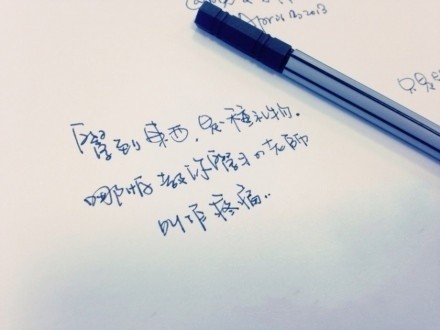 2013
只是
「學到東西，是種禮物.
哪怕教你學習的老師
叫作疼痛..